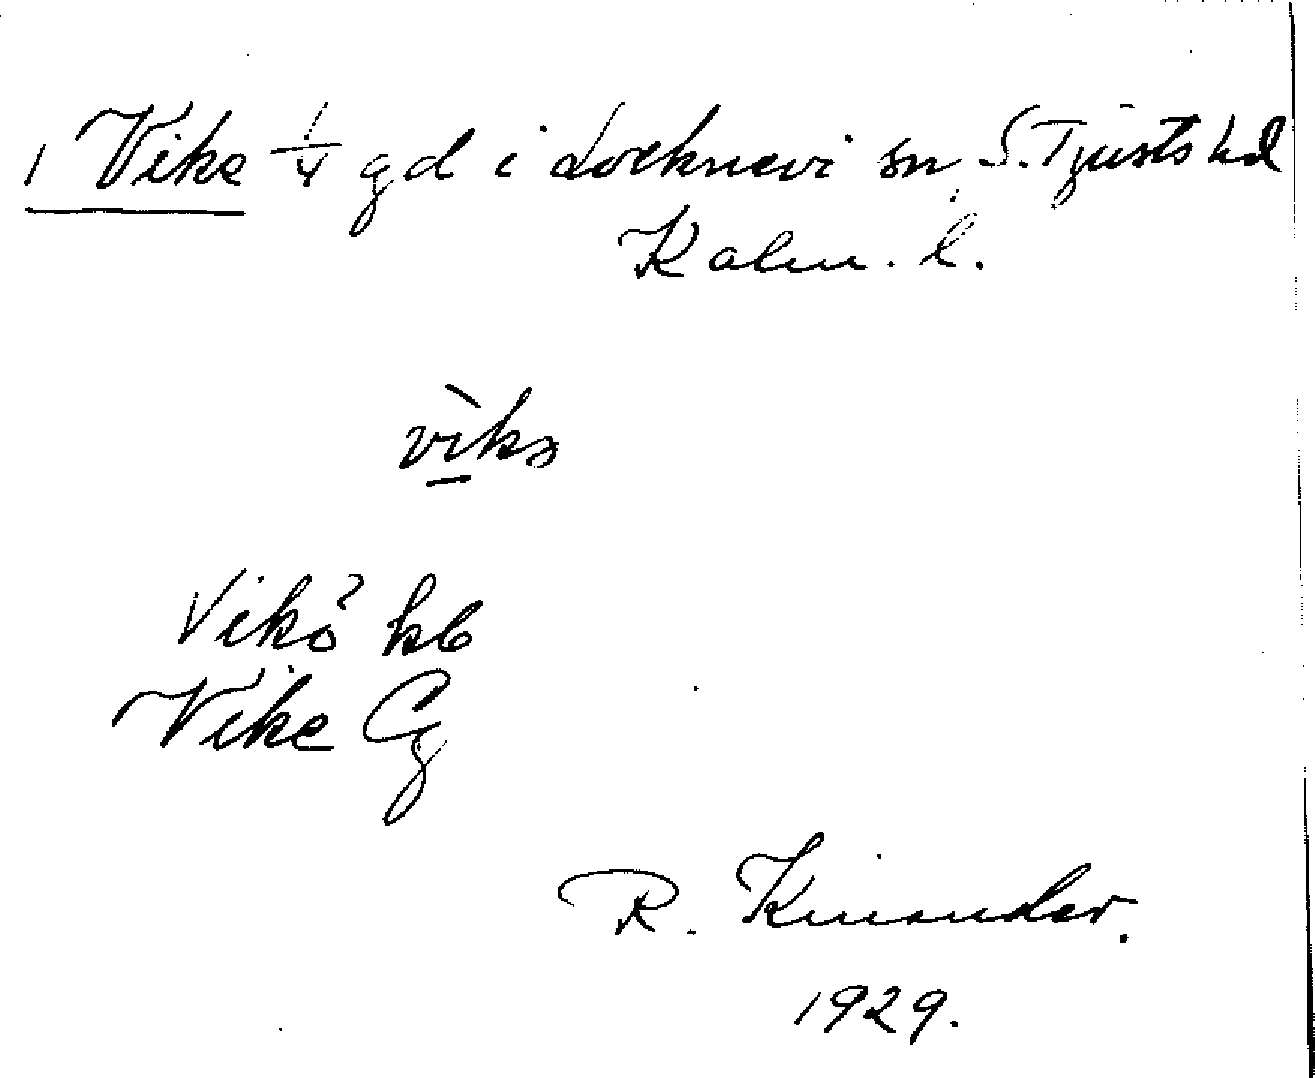 1 Vike 1/4 gd i Locknevi sn, S. Tjusts hd
Kalm. l.
vìkə
Vikö? kb
Vike Cg
R. Kinander.
1929.